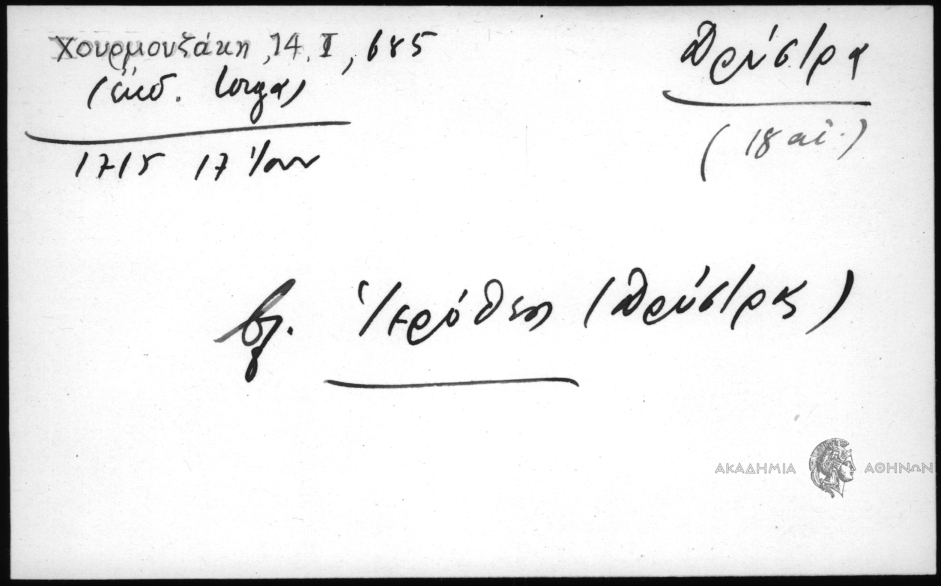 Χουρμουζάκη, 14.I, 685
(ἐκδ. Iorga)
1715 17 Ἰουν
Δρύστρα
(18 αἰ.)
βλ. Ἱερόθεος (Δρύστρας)
ΑΚΑΔΗΜΙΑ ΑΘΗΝΩΝ